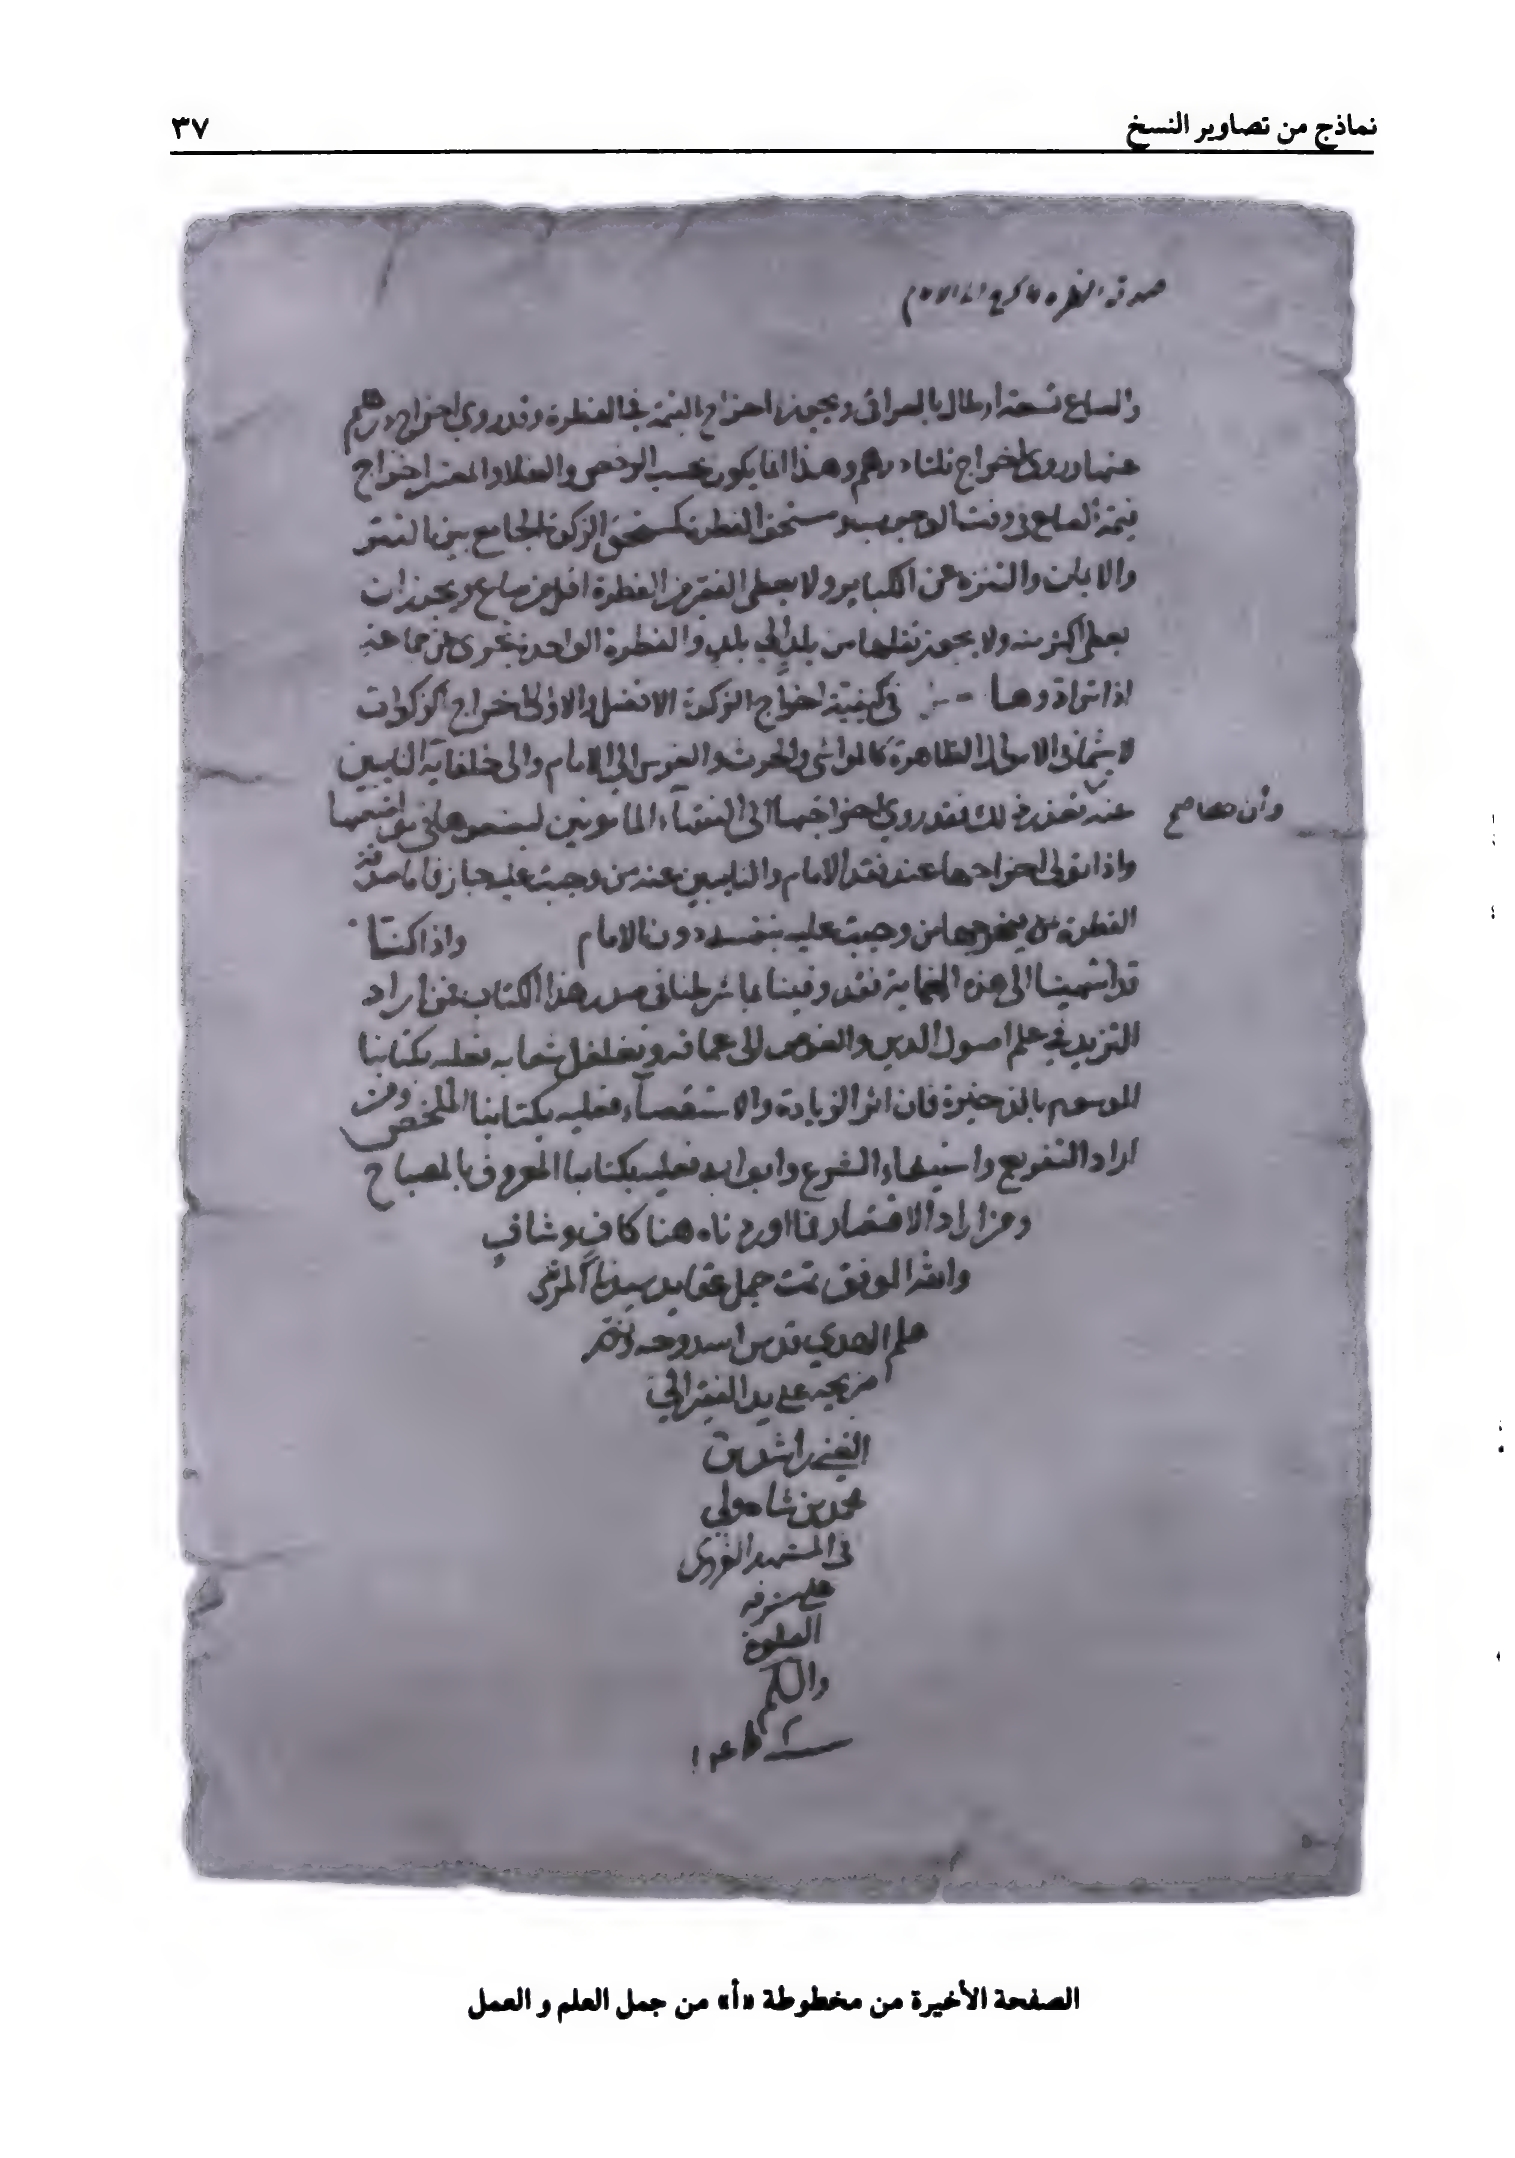 نماذج من تصاوير النسخ
٣٧
صدقة الفطرة الامام
والصاع تسعة ارطال بالعراقي ويجوز اخراج القيمة في الفطرة وقد روي اخراج درهم
عنها وروي اخراج ثلثا درهم وهذا انما يكون بحسب الرخص والغلا والمعتبر اخراج
قيمة الصاع في وقت الوجوب مستحق الفطرة كمستحق الزكوة الجامع بين الفقر
والايمان والتنزه عن الكبائر ولا يعطى الفقير من الفطرة اقل من صاع ويجوز ان
يعطى اكثر منه ولا يجوز نقلها من بلد الى بلد والفطرة الواحدة تجزى عن جماعة
اذا ترادوها في كيفية اخراج الزكوة الافضل والاولى اخراج الزكوات
لا سيما في الاموال الظاهرة كالمواشي والحرث والغرس الى الامام والى خلفائه النايبين
عنه تعذر ذلك فقد روي اخراجها الى الفقهاء المامونين ليضعوها في مواضعها
وان صح
واذا تولى اخراجها عند فقد الامام والنايبين عنه من وجبت عليه جاز فاما صدقة
الفطرة يخرجها من وجبت عليه بنفسه دون الامام واذا كنا
قد انتهينا الى هذه الغاية فقد وفينا بما شرطنا في صدر هذا الكتاب فمن اراد
التزيد في علم اصول الدين والغوص الى اعماقه وتغلغل شعابه فعليه بكتابنا
الموسوم بالذخيرة فان اثر الزيادة والاستقصاء فعليه بكتابنا الملخص ومن
اراد التفريع واستيفاء الشرع وابوابه فعليه بكتابنا المعروف بالمصباح
ومن اراد الاقتصار فما اوردناه هنا كاف وشاف
والله الموفق تمت جمل عقايد سيدنا المرتضى
علم الهدي قدس الله روحه ونور
ضريحه على يد الفقير الى
الغني راشد بن
محمد بن شاهولي
في المشهد الغروي
على مشرفه
الصلوة
والسلم
الصفحة الأخيرة من مخطوطة «أ» من جمل العلم و العمل